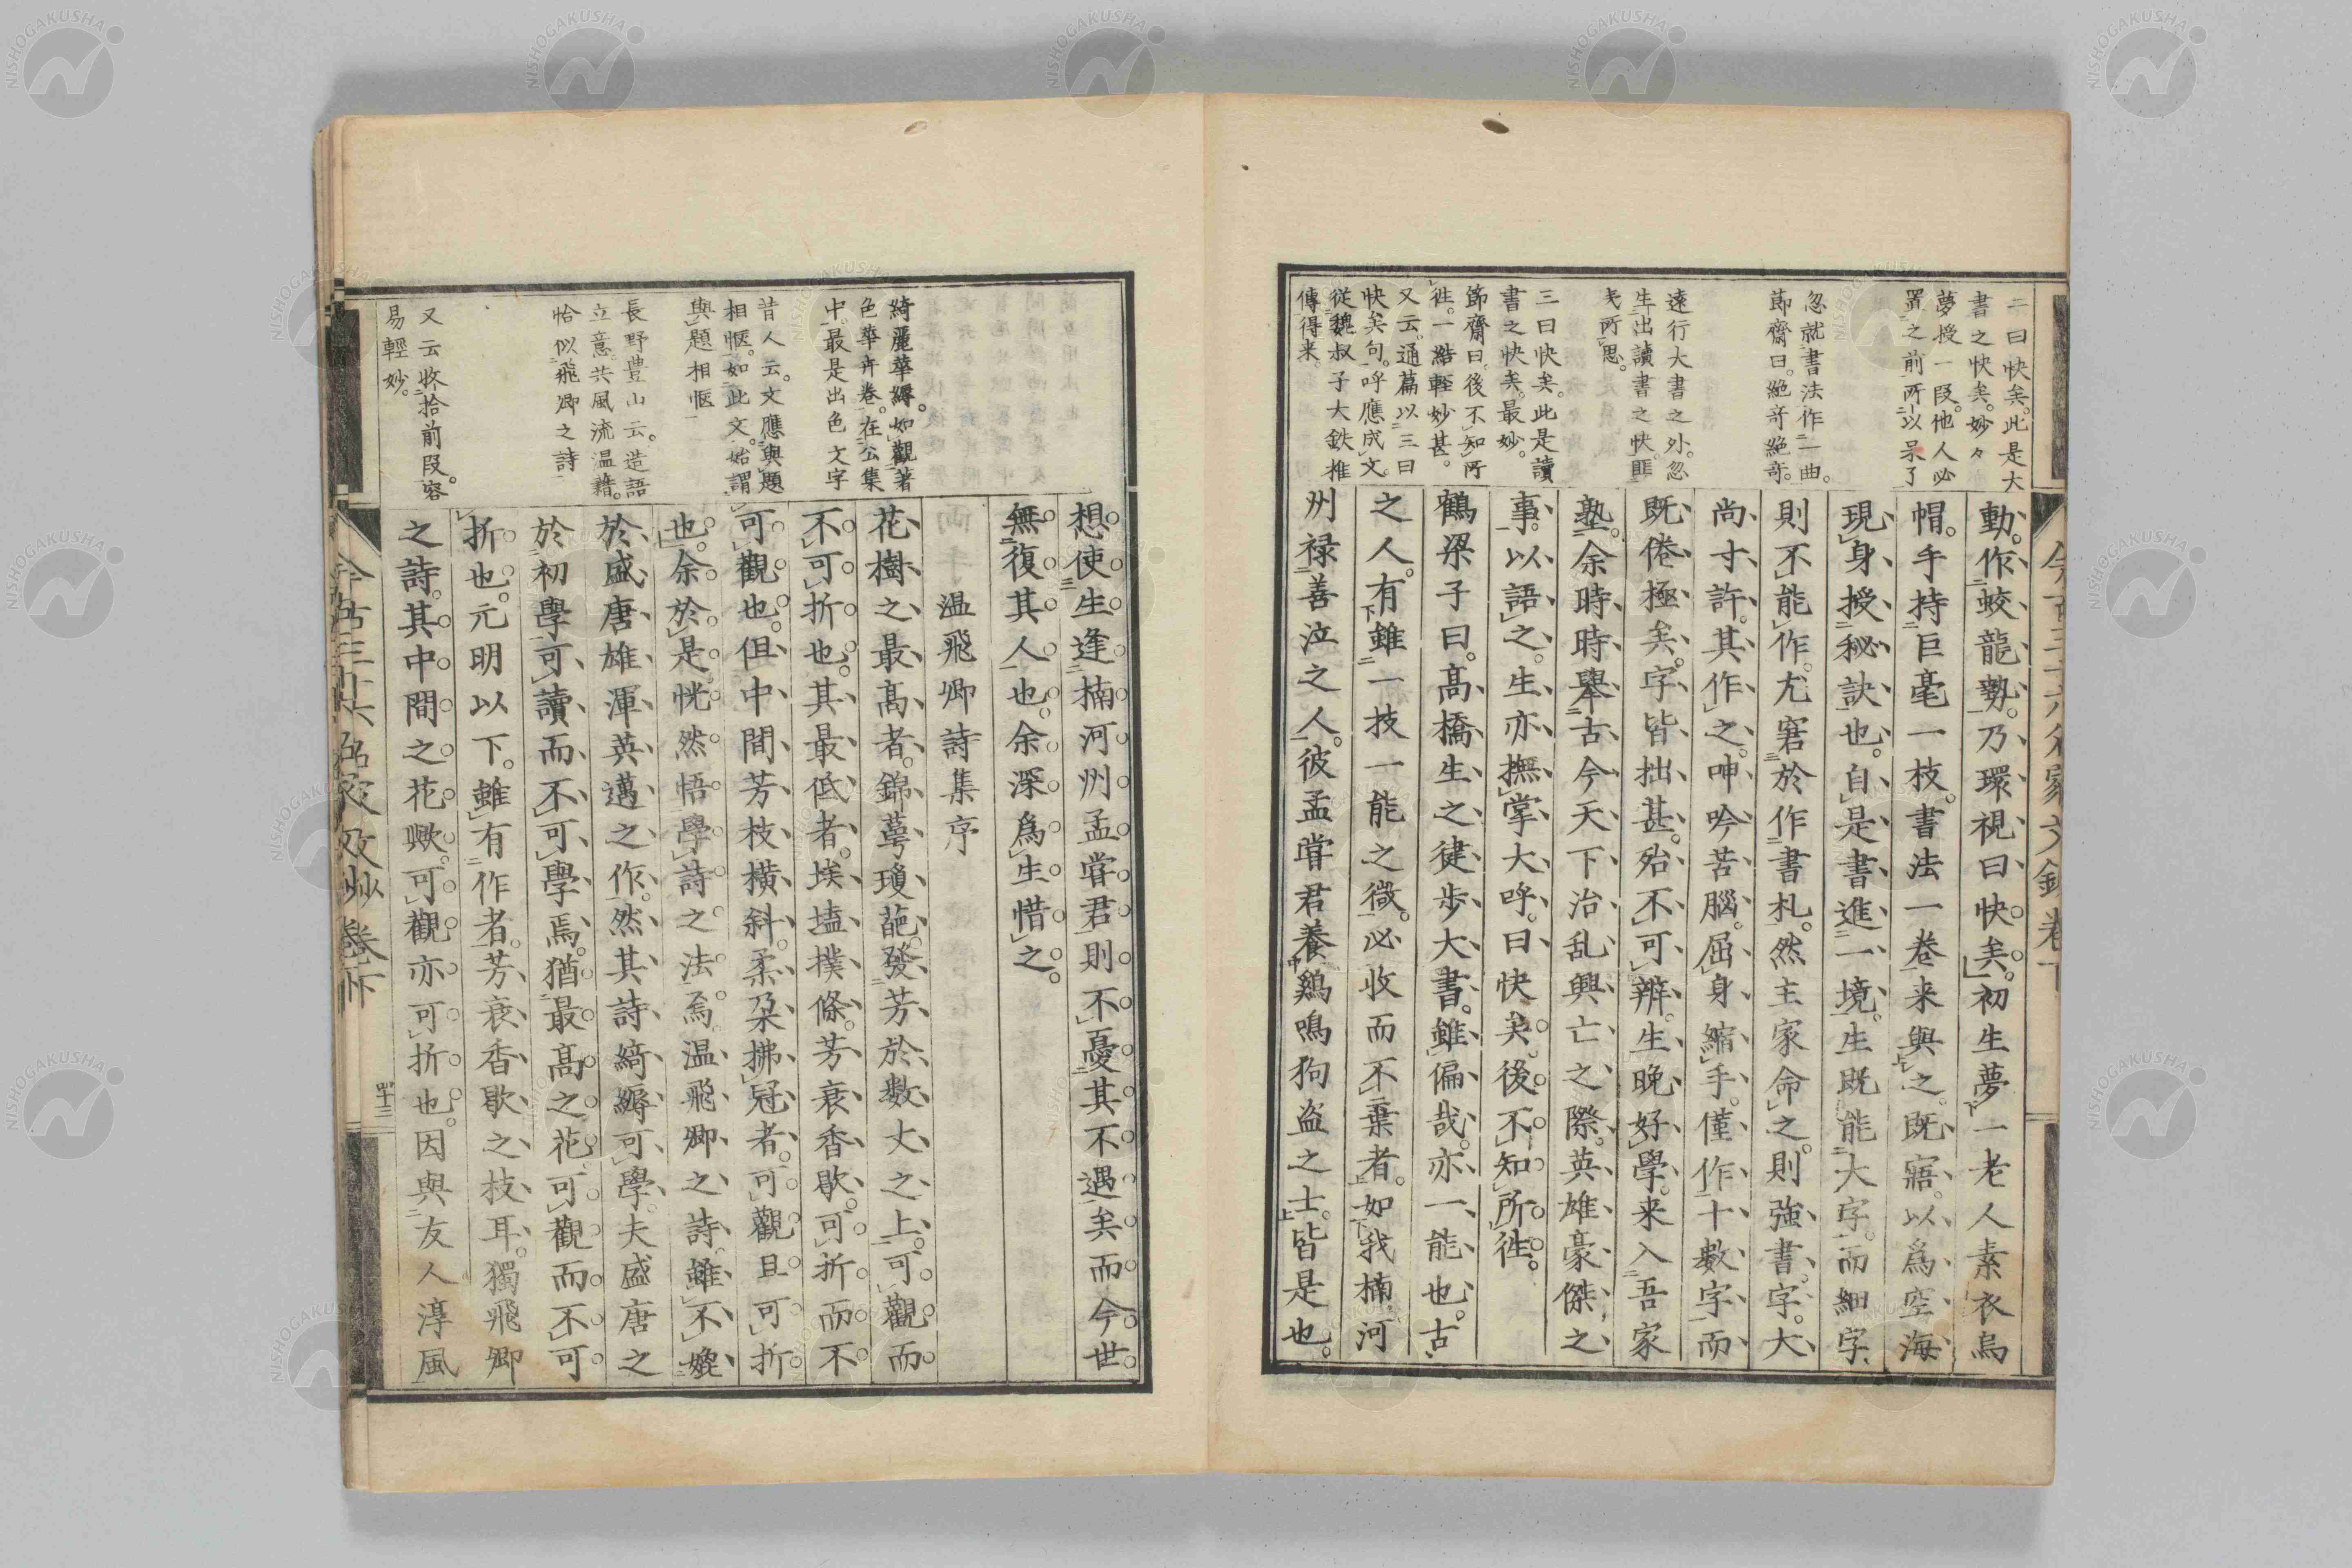 二曰快矣。此是大
書之快矣。妙々
夢授一段。他人必
置之前所以呆了
忽就書法作一曲。
節齋曰。絶奇絶奇。
遠行大書之外。忽
生出讀書之快。匪
夷所思。
三曰快矣。此是讀
書之快矣。最妙。
節齋曰。後不知所
徃。一結輕妙甚。
又云。通篇以三曰
快矣句。呼應成文
從魏叔子大鉄椎
傳得来。
動。作蛟龍勢。乃環視曰快矣。初生夢一老人素衣烏
帽。手持巨毫一枝。書法一卷来與之。既寤。以爲空海
現身授秘訣也。自是書進一境。生既能大字。而細字
則不能作。尤窘於作書札。然主家命之。則強書。字大
尚寸許。其作之。呻吟苦腦。屈身縮手。僅作十數字而
既倦極矣。字皆拙甚。殆不可辨。生晩好學。来入吾家
塾。余時時舉古今天下治乱興亡之際。英雄豪傑之
事。以語之。生亦撫掌大呼。曰快矣。後不知所徃。
鶴梁子曰。髙橋生之徤步大書。雖偏哉。亦一能也。古
之人。有雖一技一能之微。必收而不棄者。如我楠河
州禄善泣之人。彼孟甞君養鷄鳴狗盗之士。皆是也。
今古三十六名家文鈔卷下
想使生逢楠河州孟甞君。則不憂其不遇矣而今世
無復其人也。余深爲生惜之。
温飛卿詩集序
花樹之最髙者。錦萼瓊葩。發芳於數丈之上。可觀而
不可折也。其最低者。埃壒撲條。芳衰香歇。可折而不
可觀也。但中間芳枝横斜。柔朶拂冠者。可觀且可折
也。余於是恍然悟學詩之法焉。温飛卿之詩。雖不媲
於盛唐雄渾英邁之作。然其詩綺縟可學。夫盛唐之
於初學。可讀而不可學焉。猶最髙之花。可觀而不可
折也。元明以下。雖有作者。芳衰香歇之枝耳。獨飛卿
之詩。其中間之花歟。可觀亦可折也。因與友人淳風
綺麗華縟。如觀著
色華卉卷。在公集
中。最是出色文字
昔人云。文應與題
相愜。如此文。始謂
與題相愜
長野豊山云。造語
立意共風流温藉。
恰似飛卿之詩
又云收拾前段。容
易輕妙。
今古三十六名家文抄卷下
四十三